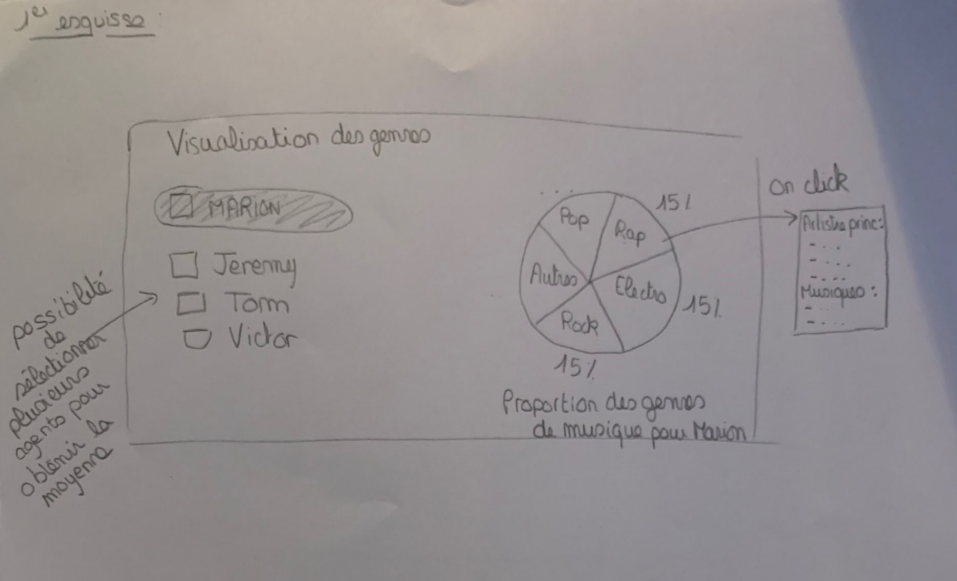 1e esquisse :
Visualisation des genres
MARION
Jeremy
Tom
Victor
possibilité
de
sélectionner
plusieurs
agents pour
obtenir la
moyenne
...
Pop
Rap
Autres
Electro
Rock
15%
15%
15%
Proportion des genres
de musique pour Marion
On click
Artistes princ:
- ...
- ...
- ...
Musiques :
- ...
- ...